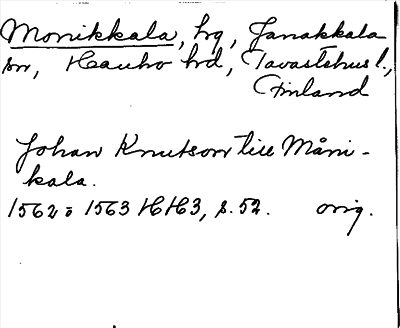 Monikkala, hg, Janakkala
sn, Hauho hd, Tavastehus l.,
Finland
Johan Knutson till Måni-
kala.
1562 o 1563 HH3, s. 52. orig.